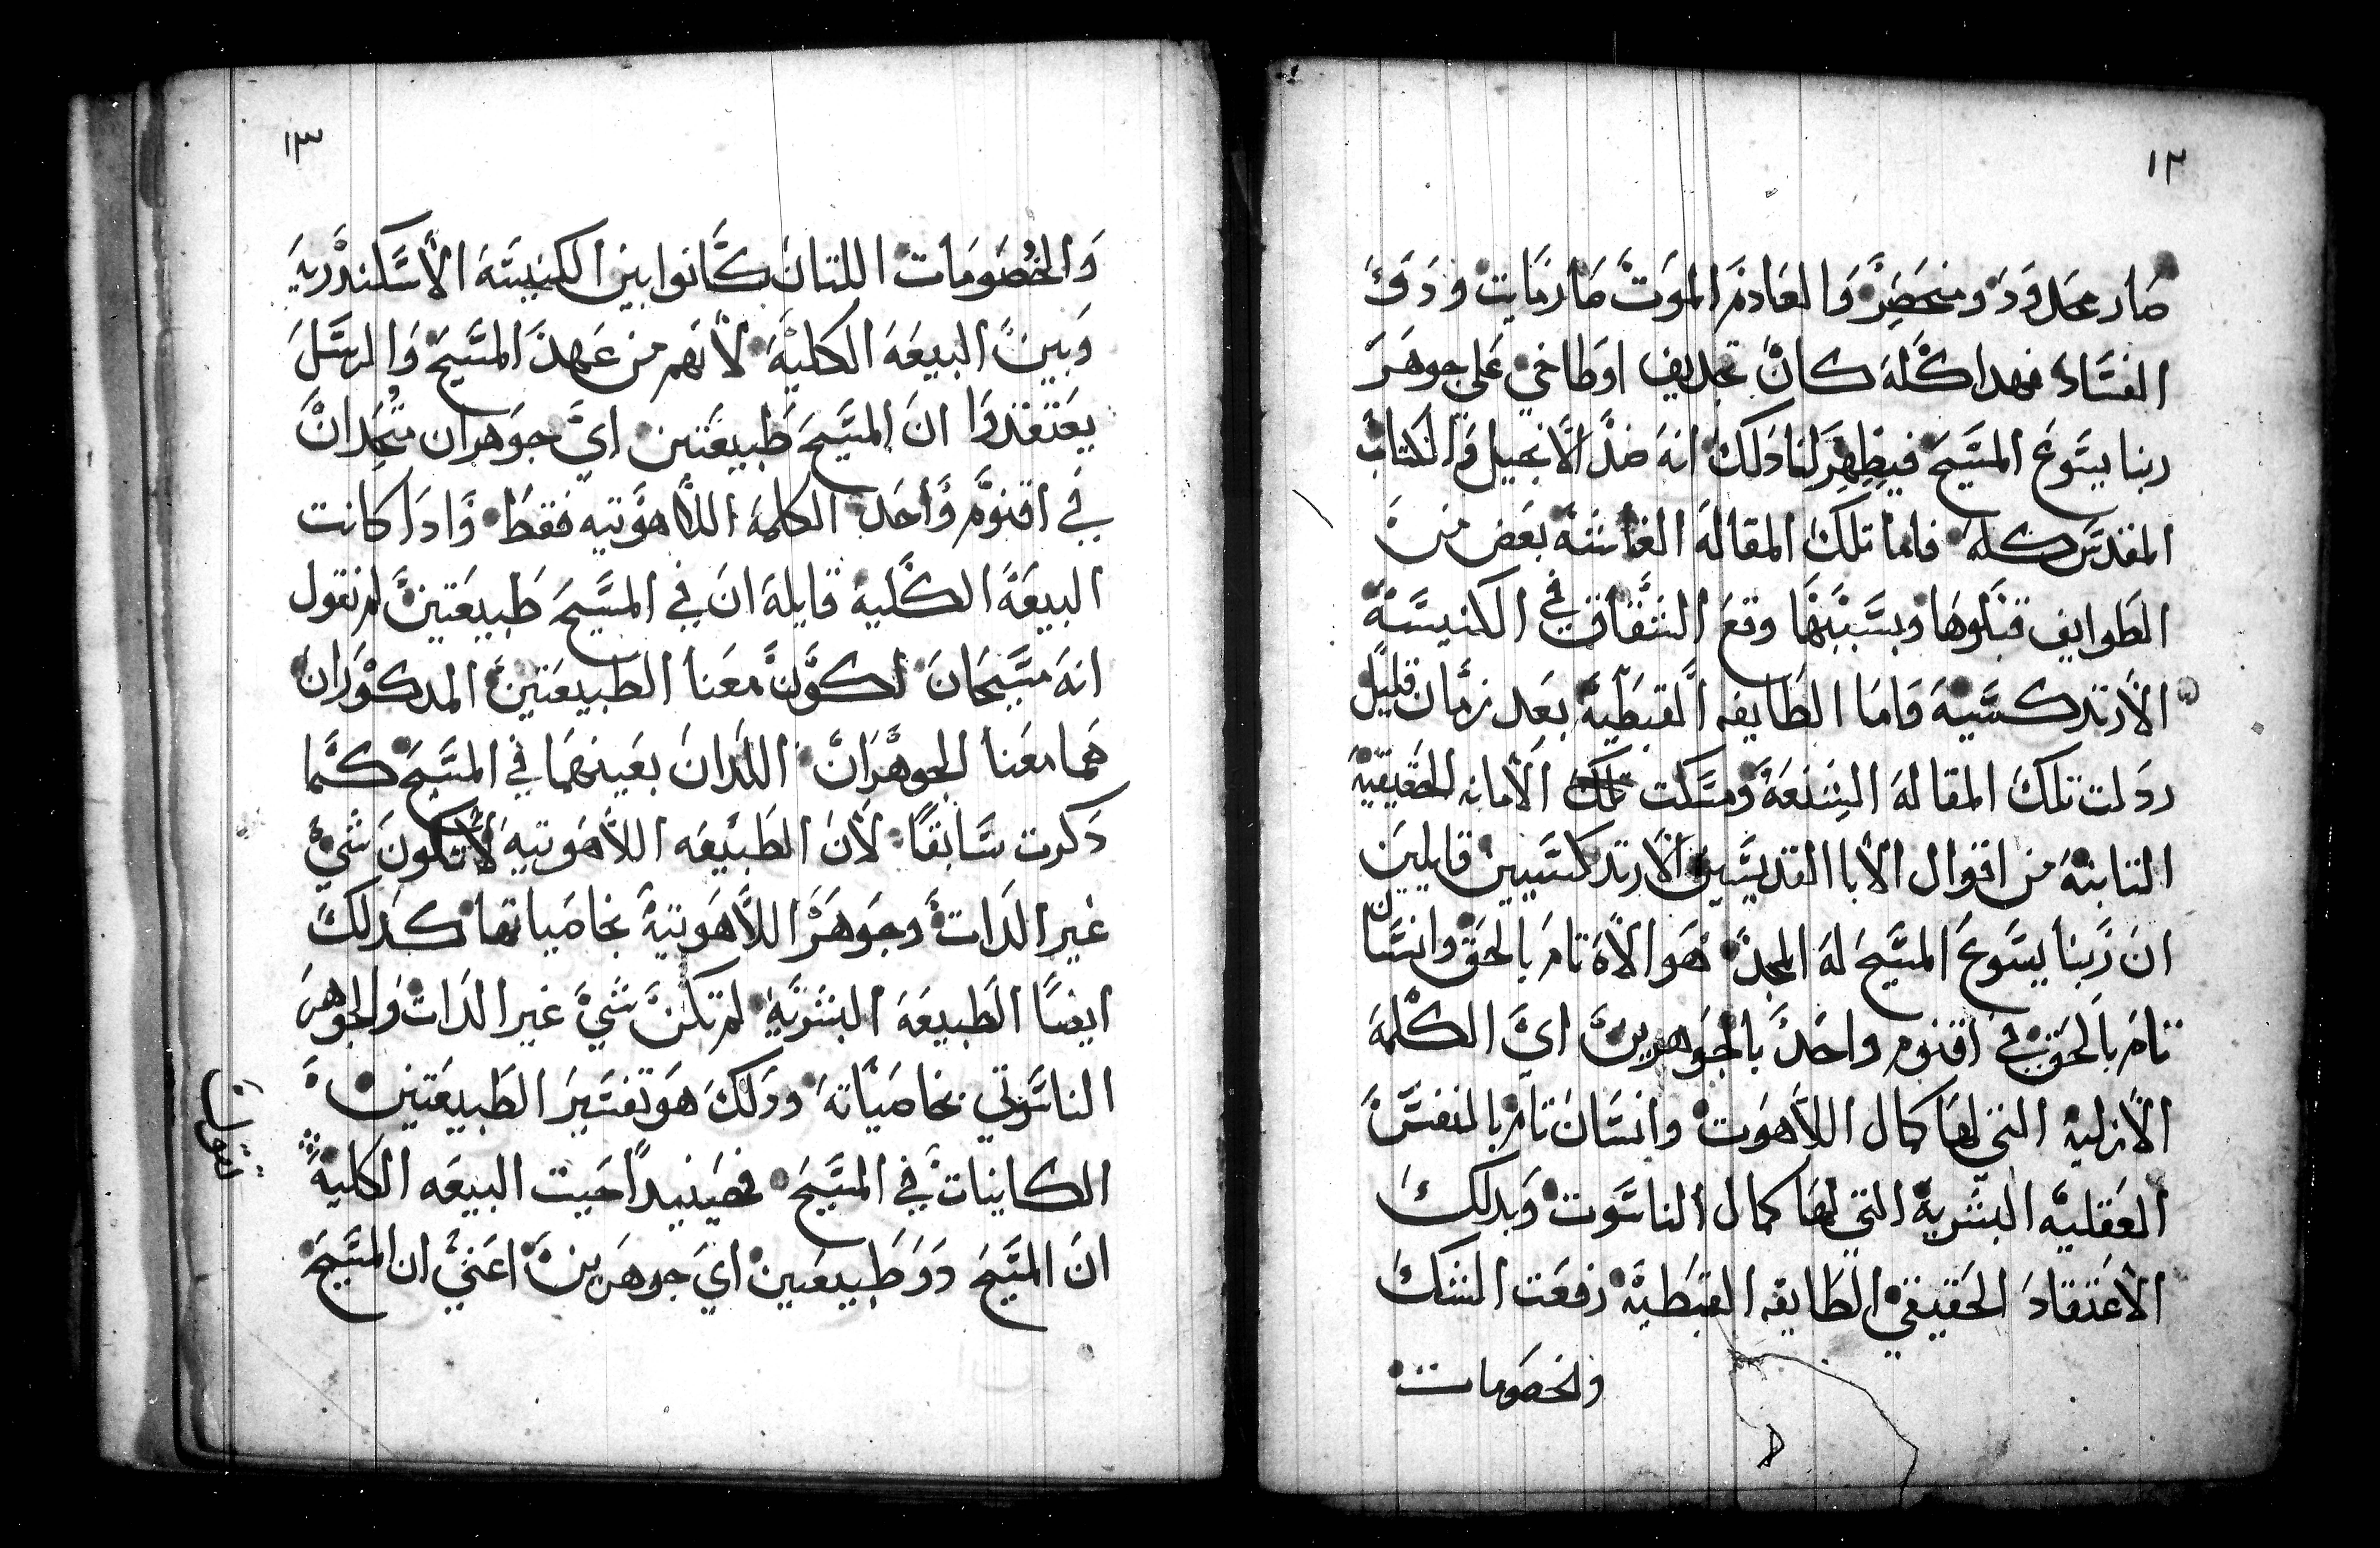 ١٢
صار محدود ومنحصر والعادم الموت صار مايت وذوق
الفساد فهدا كله كان تجديف اوطاخي على جوهر
ربنا يسوع المسيح فيظهر لنا دلك انه ضد الانجيل والكتاب
المقدس كله فاما تلك المقالة الغاشة بعض من
الطوايف قبلوها وبسببها وقع الشقاق في الكنيسة
الارتدكسية واما الطايفه القبطية بعد زمان قليل
ردلت تلك المقالة الشنعة ومسكت تلك الامانه الحقيقية
التابتة من اقوال الابا القديسين الارتدكسيين قايلين
ان ربنا يسوع المسيح له المجد هو الاه تام بالحق وانسان
تام بالحق في اقنوم واحد بالجوهرين اي الكلمة
الازلية التي لها كمال اللاهوت وانسان تام بالنفس
العقلية البشرية التي لها كمال الناسوت وبدلك
الاعتقاد الحقيقي الطايفه القبطية رفعت الشك
والخصومات
١٣
والخصومات اللتان كانوا بين الكنيسة الاسكندرية
وبين البيعة الكلية لانهم من عهد المسيح والرسل
يعتقدوا ان المسيح طبيعتين اي جوهران متحدان
في اقنوم واحد الكلمة اللاهوتيه فقط وادا كانت
البيعة الكلية قايلة ان في المسيح طبيعتين لم تقول
انه مسيحان لكون معنا الطبيعتين المدكوران
هما معنا الجوهران اللدان بعينهما في المسيح كما
دكرت سابقا لان الطبيعه اللاهوتية لا تكون شي
غير الدات وجوهر اللاهوتية بخاصياتها كدلك
ايضا الطبيعة البشرية لم تكن شي غير الدات والجوهر
الناسوتي بخاصياته ودلك هو تفسير الطبيعتين
الكاينات في المسيح فحينيدا حيت البيعه الكلية
تقول
ان المسيح دو طبيعتين اي جوهرين اعني ان المسيح